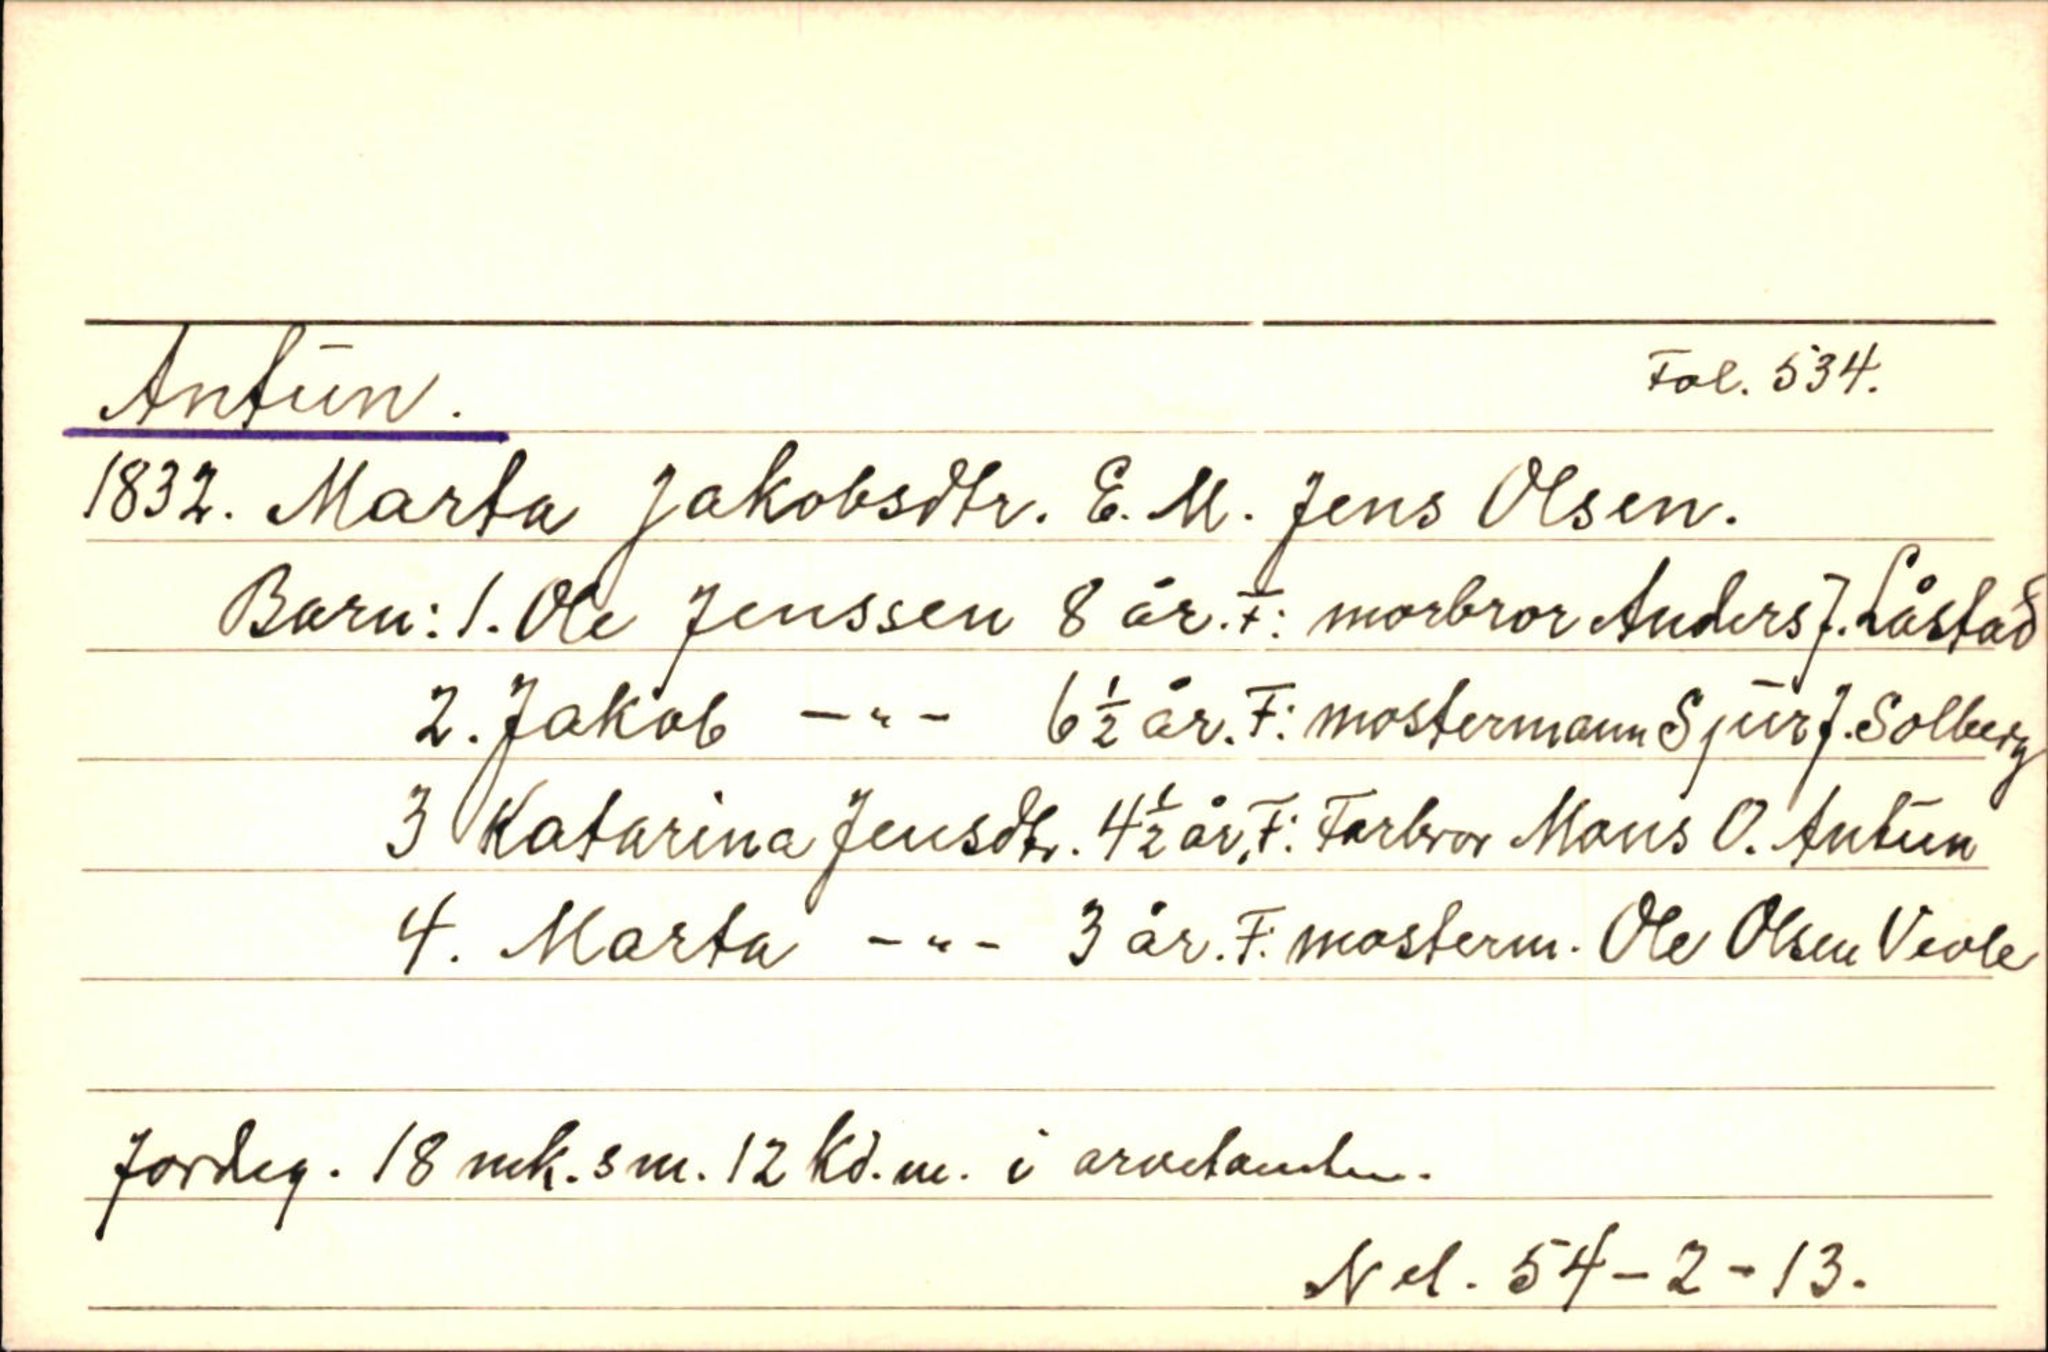 Antūn. Fol. 534.
1832. Marta Jakobsdtr. E. M. Jens Olsen.
Barn: 1. Ole Jenssen 8 år. F: morbror Anders J. Låstad
2. Jakob -"- 6½ år. F: mostermann Sjūr J. Solberg
3 Katarina Jensdtr. 4½ år, F: Farbror Mons O. Antūn
4. Marta -"- 3 år. F: mosterm. Ole Olsen Veole
Jordeg. 18 mk. sm. 12 Kd. m. i arvetomten.
Nel. 54-2-13.